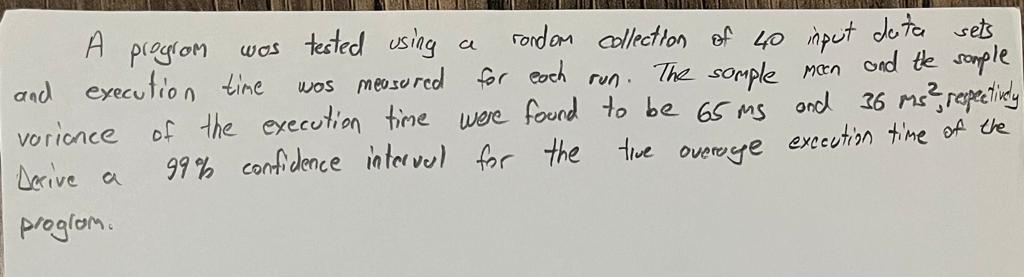 A program was tested using a random collection of 40 input data sets
and execution time was measured for each run. The sample mean and the sample
variance of the execution time were found to be 65 ms and 36 ms², respectively
Derive a 99% confidence interval for the true average execution time of the
program.